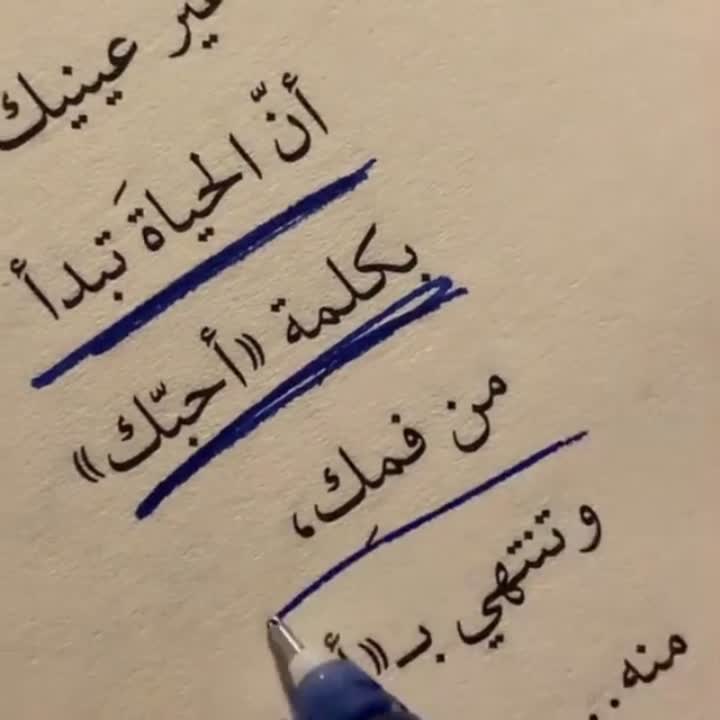 عينيك
أنّ الحياةَ تبدأ
بكلمة «أحبّك»
من فمِك،
وتنتهي بـ «أ
منه..